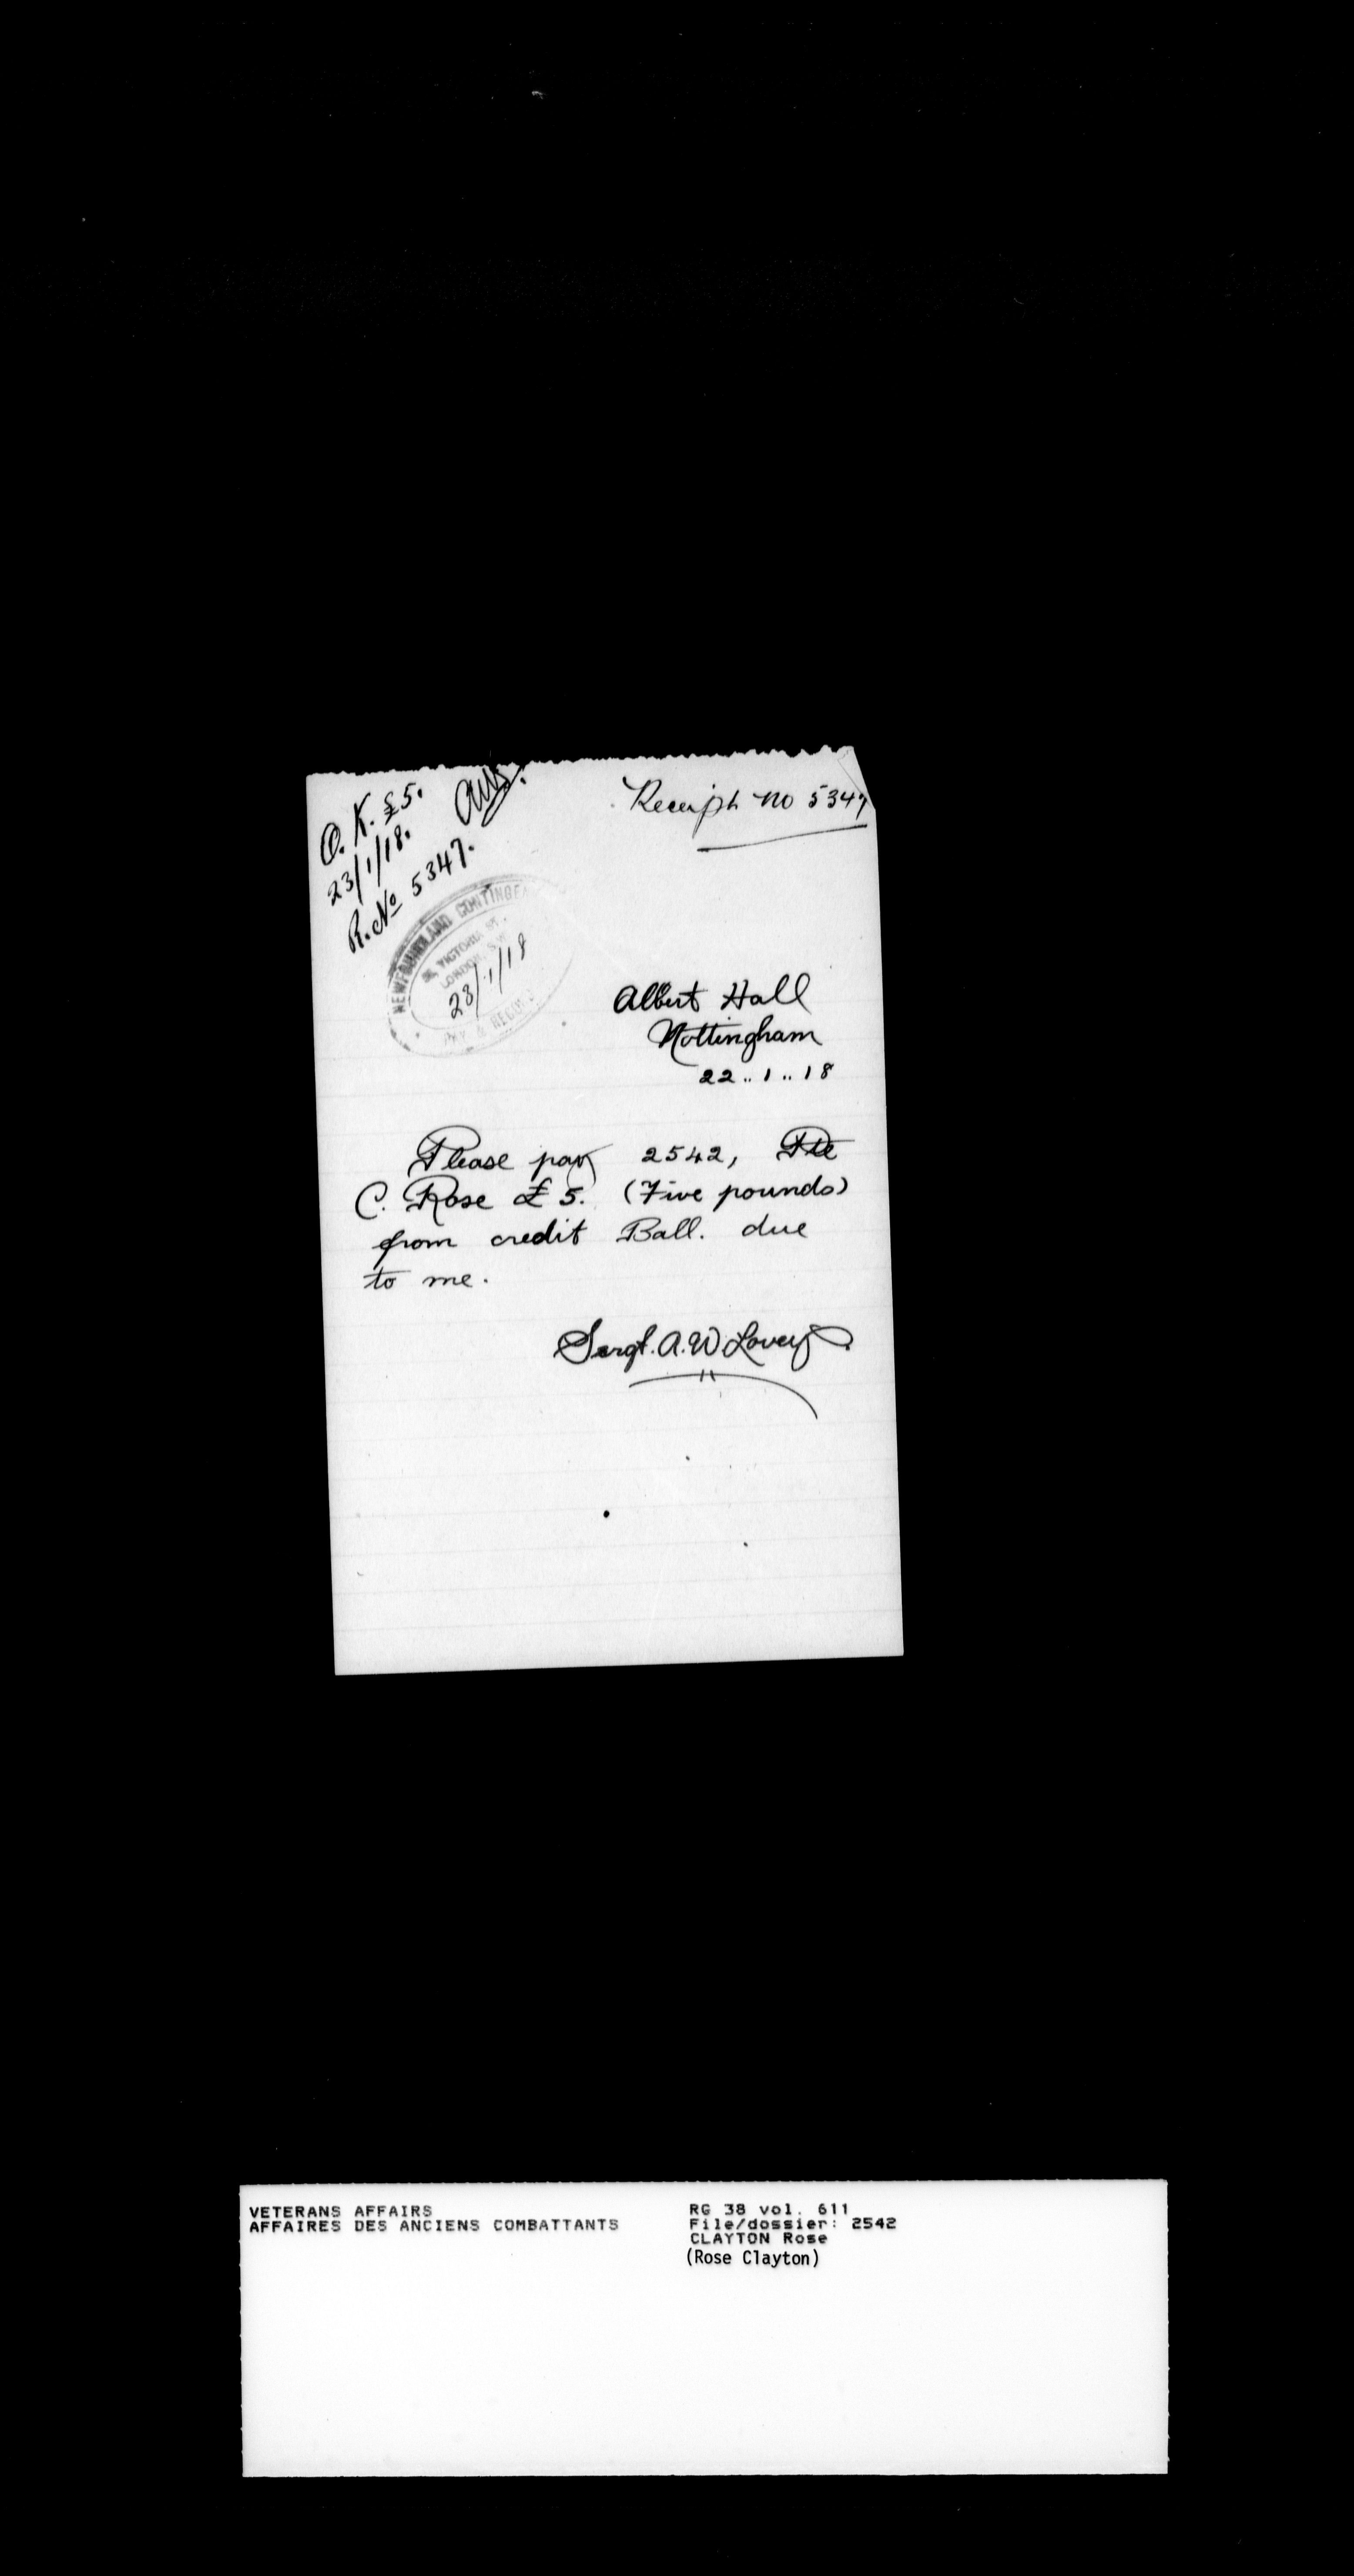 O. K. £5.
23/1/18.
R. No 5347.
Receipt no 5347
NEWFOUNDLAND CONTINGEN
VICTORIA ST.
LONDON, S.W.
23/1/18
PAY & RECORD
Albert Hall
Nottingham
22..1..18
Please pay 2542, Pte
C. Rose £5. (Five pounds)
from credit Ball. due
to me.
Sergt. A. W. Lovey.
VETERANS AFFAIRS
AFFAIRES DES ANCIENS COMBATTANTS
RG 38 vol. 611
File/dossier: 2542
CLAYTON Rose
(Rose Clayton)